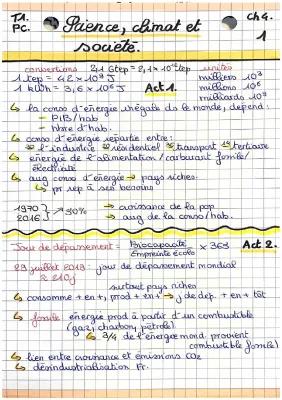 T1. PC.
Science, climat et société.
Ch4. 1
conversions 2,1 Gtep = 2,1 × 10⁹ tep unités
1 tep = 4,2 × 10¹⁰ J
milliers 10³
1 kWh = 3,6 × 10⁶ J Act 1.
millions 10⁶
milliards 10⁹
↳ la conso d'énergie inégale ds le monde, dépend :
→ PIB/hab
→ Nbre d'hab.
↳ conso d'énergie répartie entre :
* l'industrie * résidentiel * transport * tertiaire
↳ énergie de l'alimentation / carburant fossile /
électricité
↳ aug conso d'énergie → pays riches.
↳ pr rep à ses besoins
1970
2016 → 30% → croissance de la pop
→ aug de la conso/hab.
Jour de dépassement = Biocapacité / Empreinte écolo × 365 Act 2.
29 juillet 2019 : jour de dépassement mondial
≈ 210j
surtout pays riches
↳ consomme + en +, prod + en + → j de dép. + en + tôt
↳ fossile énergie prod à partir d'un combustible
(gaz, charbon, pétrole)
↳ 3/4 de l'énergie mond. provient
combustible fossile)
↳ lien entre croissance et émissions CO₂
↳ désindustrialisation Fr.